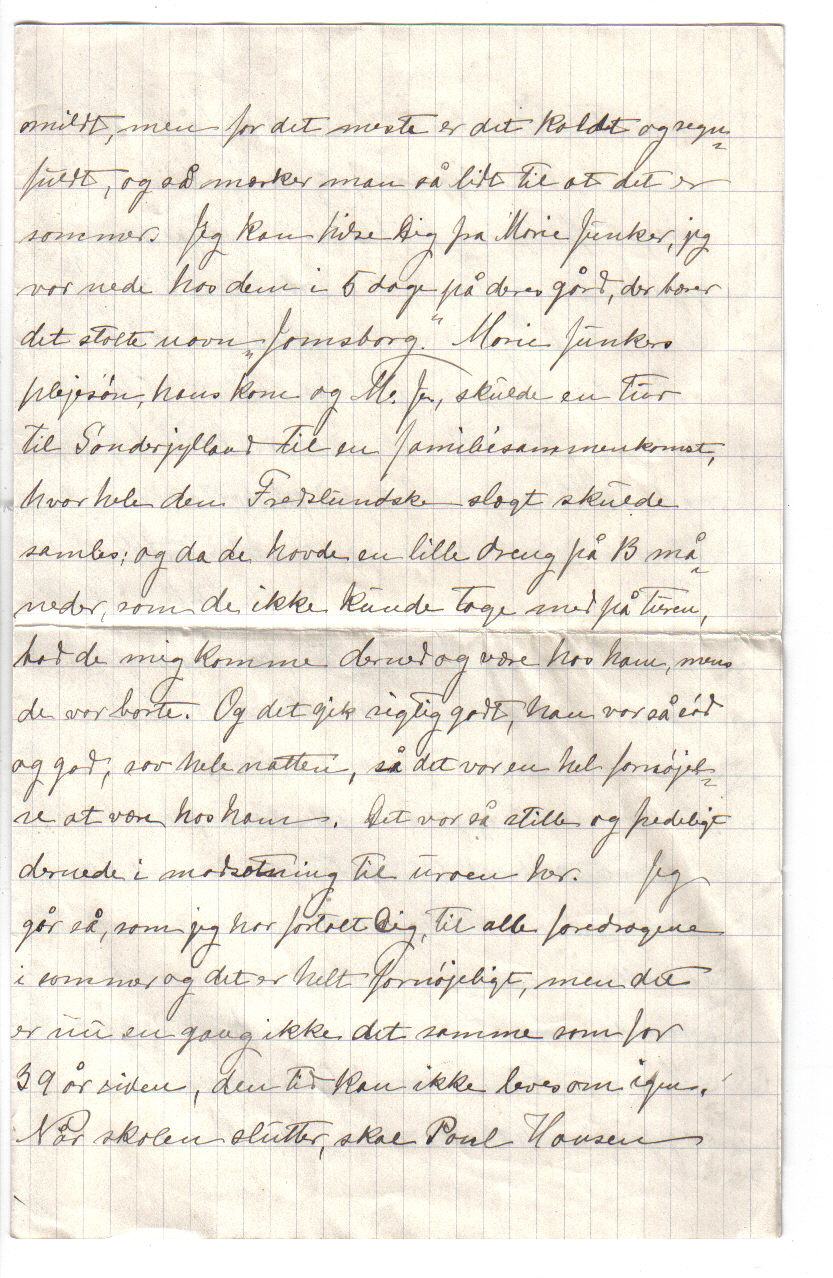 mildt, men for det meste er det koldt og regn-
fuldt, og så mærker man så lidt til at det er
sommer. Jeg kan hilse Dig fra Marie Junker, jeg
var nede hos dem i 5 dage på deres gård, der bærer
det stolte navn "Jomsborg." Marie Junkers
plejesøn, hans kone og M. J., skulde en tur
til Sønderjylland til en familiesammenkomst,
hvor hele den Fredslundske slægt skulde
samles; og da de havde en lille dreng på 13 må-
neder, som de ikke kunde tage med på turen,
bad de mig komme derned og være hos ham, mens
de var borte. Og det gik rigtig godt, han var så sød
og god, sov hele natten, så det var en hel fornøjel-
se at være hos ham. Det var så stille og fredeligt
dernede i modsætning til uroen her. Jeg
går så, som jeg har fortalt Dig, til alle foredragene
i sommer og det er helt fornøjeligt, men det
er nu en gang ikke det samme som for
39 år siden, den tid kan ikke leves om igen.
Når skolen slutter, skal Poul Hansen